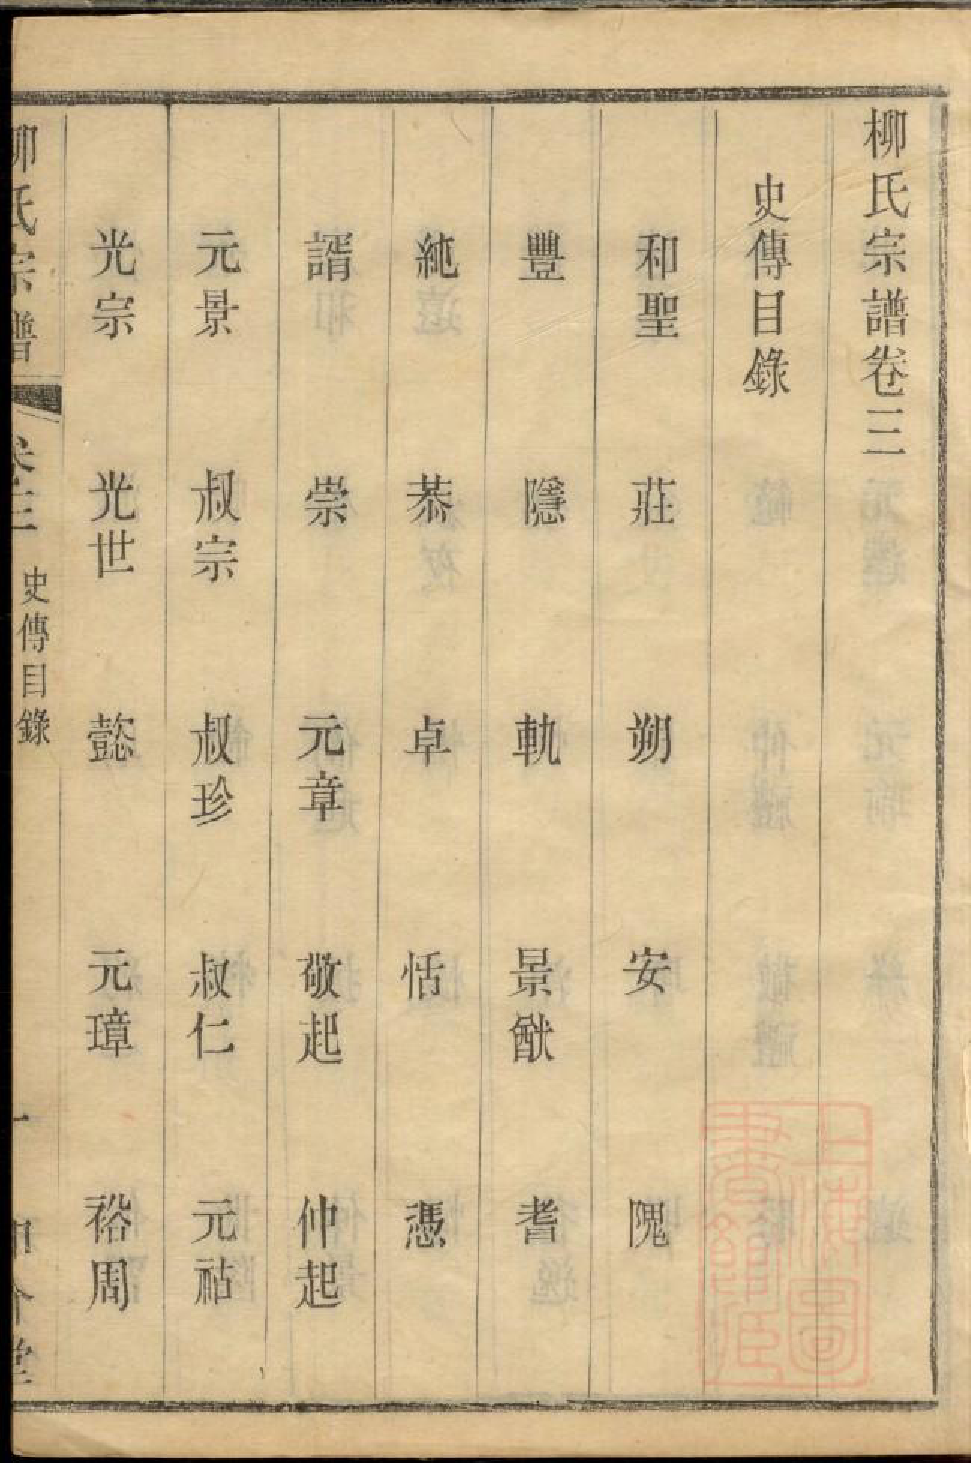 柳氏宗譜卷三
史傳目錄
和聖 莊 朔 安 隗
豐 隱 軌 景猷 耆
純 恭 卓 恬 憑
諝 崇 元章 敬起 仲起
元景 叔宗 叔珍 叔仁 元祜
光宗 光世 懿 元璋 裕周
柳氏宗譜 卷三 史傳目錄 一
上海圖書館藏